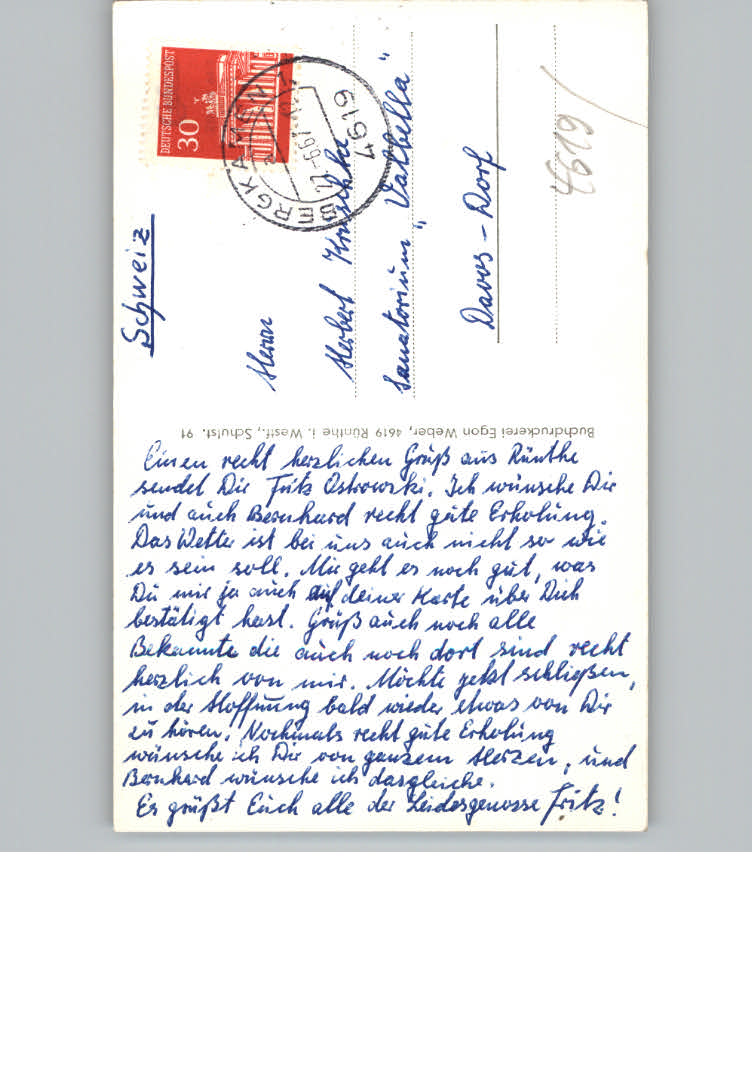 Einen recht herzlichen Grüß aus Rünthe
sendet Dir Fritz Ostrowski. Ich wünsche Dir
und auch Bernhard recht gute Erholung.
Das Wetter ist bei uns auch nicht so wie
es sein soll. Mir geht es noch gut, was
Du mir ja auch auf deiner Karte über Dich
bestätigt hast. Grüß auch noch alle
Bekannte die auch noch dort sind recht
herzlich von mir. Möchte jetzt schließen,
in der Hoffnung bald wieder etwas von Dir
zu hören. Nochmals recht gute Erholung
wünsche ich Dir von ganzem Herzen, und
Bernhard wünsche ich dasgleiche.
Es grüßt Euch alle der Leidesgenosse Fritz!
Buchdruckerei Egon Weber, 4619 Rünthe i. Westf., Schulst. 91
DEUTSCHE BUNDESPOST
30
BERGKAMEN 1
4619
Schweiz
Herrn
Herbert
Sanatorium "Valbella"
Davos-Dorf
4619